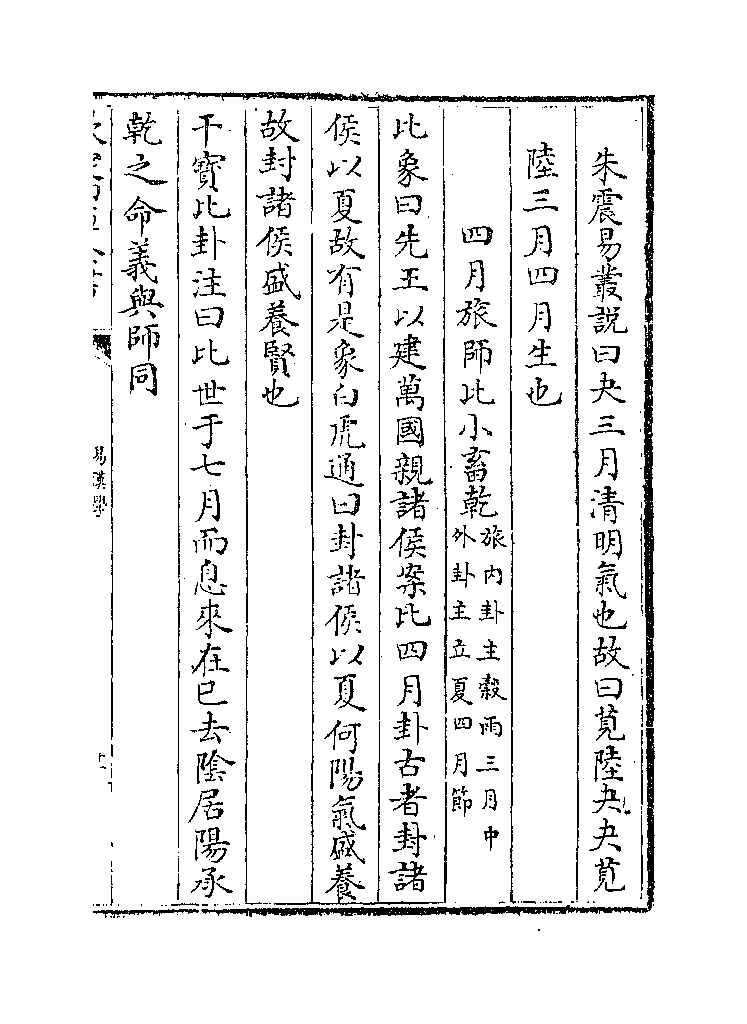 朱震易叢說曰夬三月清明氣也故曰莧陸夬夬莧
陸三月四月生也
四月旅師比小畜乾旅內卦主穀雨三月中
外卦主立夏四月節
比象曰先王以建萬國親諸侯案比四月卦古者封諸
侯以夏故有是象白虎通曰封諸侯以夏何陽氣盛養
故封諸侯盛養賢也
干寶比卦注曰比世于七月而息來在巳去陰居陽承
乾之命義與師同
易漢學